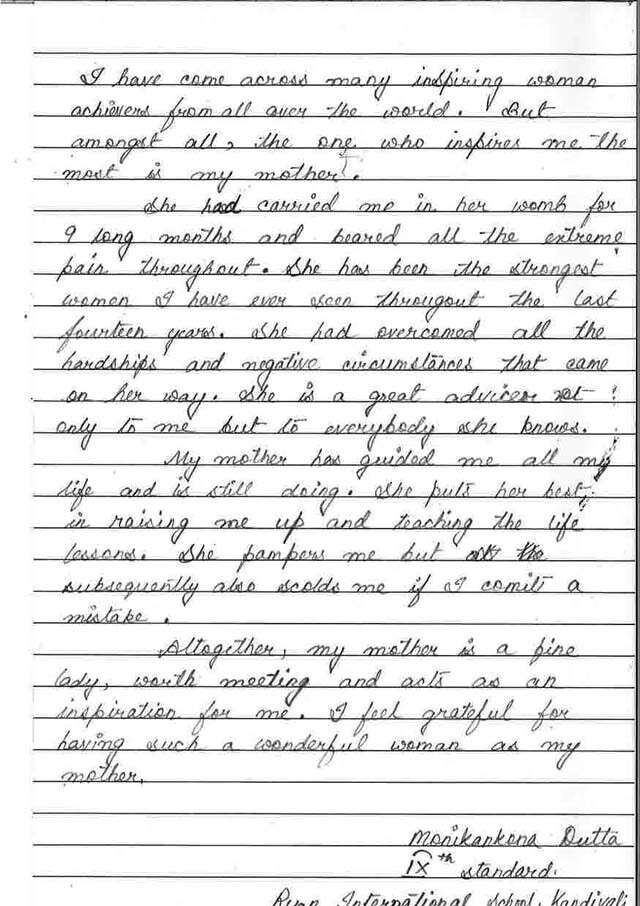 I have come across many inspiring woman
achievers from all over the world. But
amongst all, the one who inspires me the
most is my mother.
She had carried me in her womb for
9 long months and beared all the extreme
pain throughout. She has been the strongest
women I have ever seen througout the last
fourteen years. She had overcomed all the
hardships and negative circumstances that came
on her way. She is a great advicer not
only to me but to everybody she knows.
My mother has guided me all my
life and is still doing. She puts her best
in raising me up and teaching the life
lessons. She pampers me but
subsequently also scolds me if I comits a
mistake.
Altogether, my mother is a fine
lady, worth meeting and acts as an
inspiration for me. I feel grateful for
having such a wonderful woman as my
mother.
Monikankona Dutta
IXth standard.
Ryan International School, Kandivali